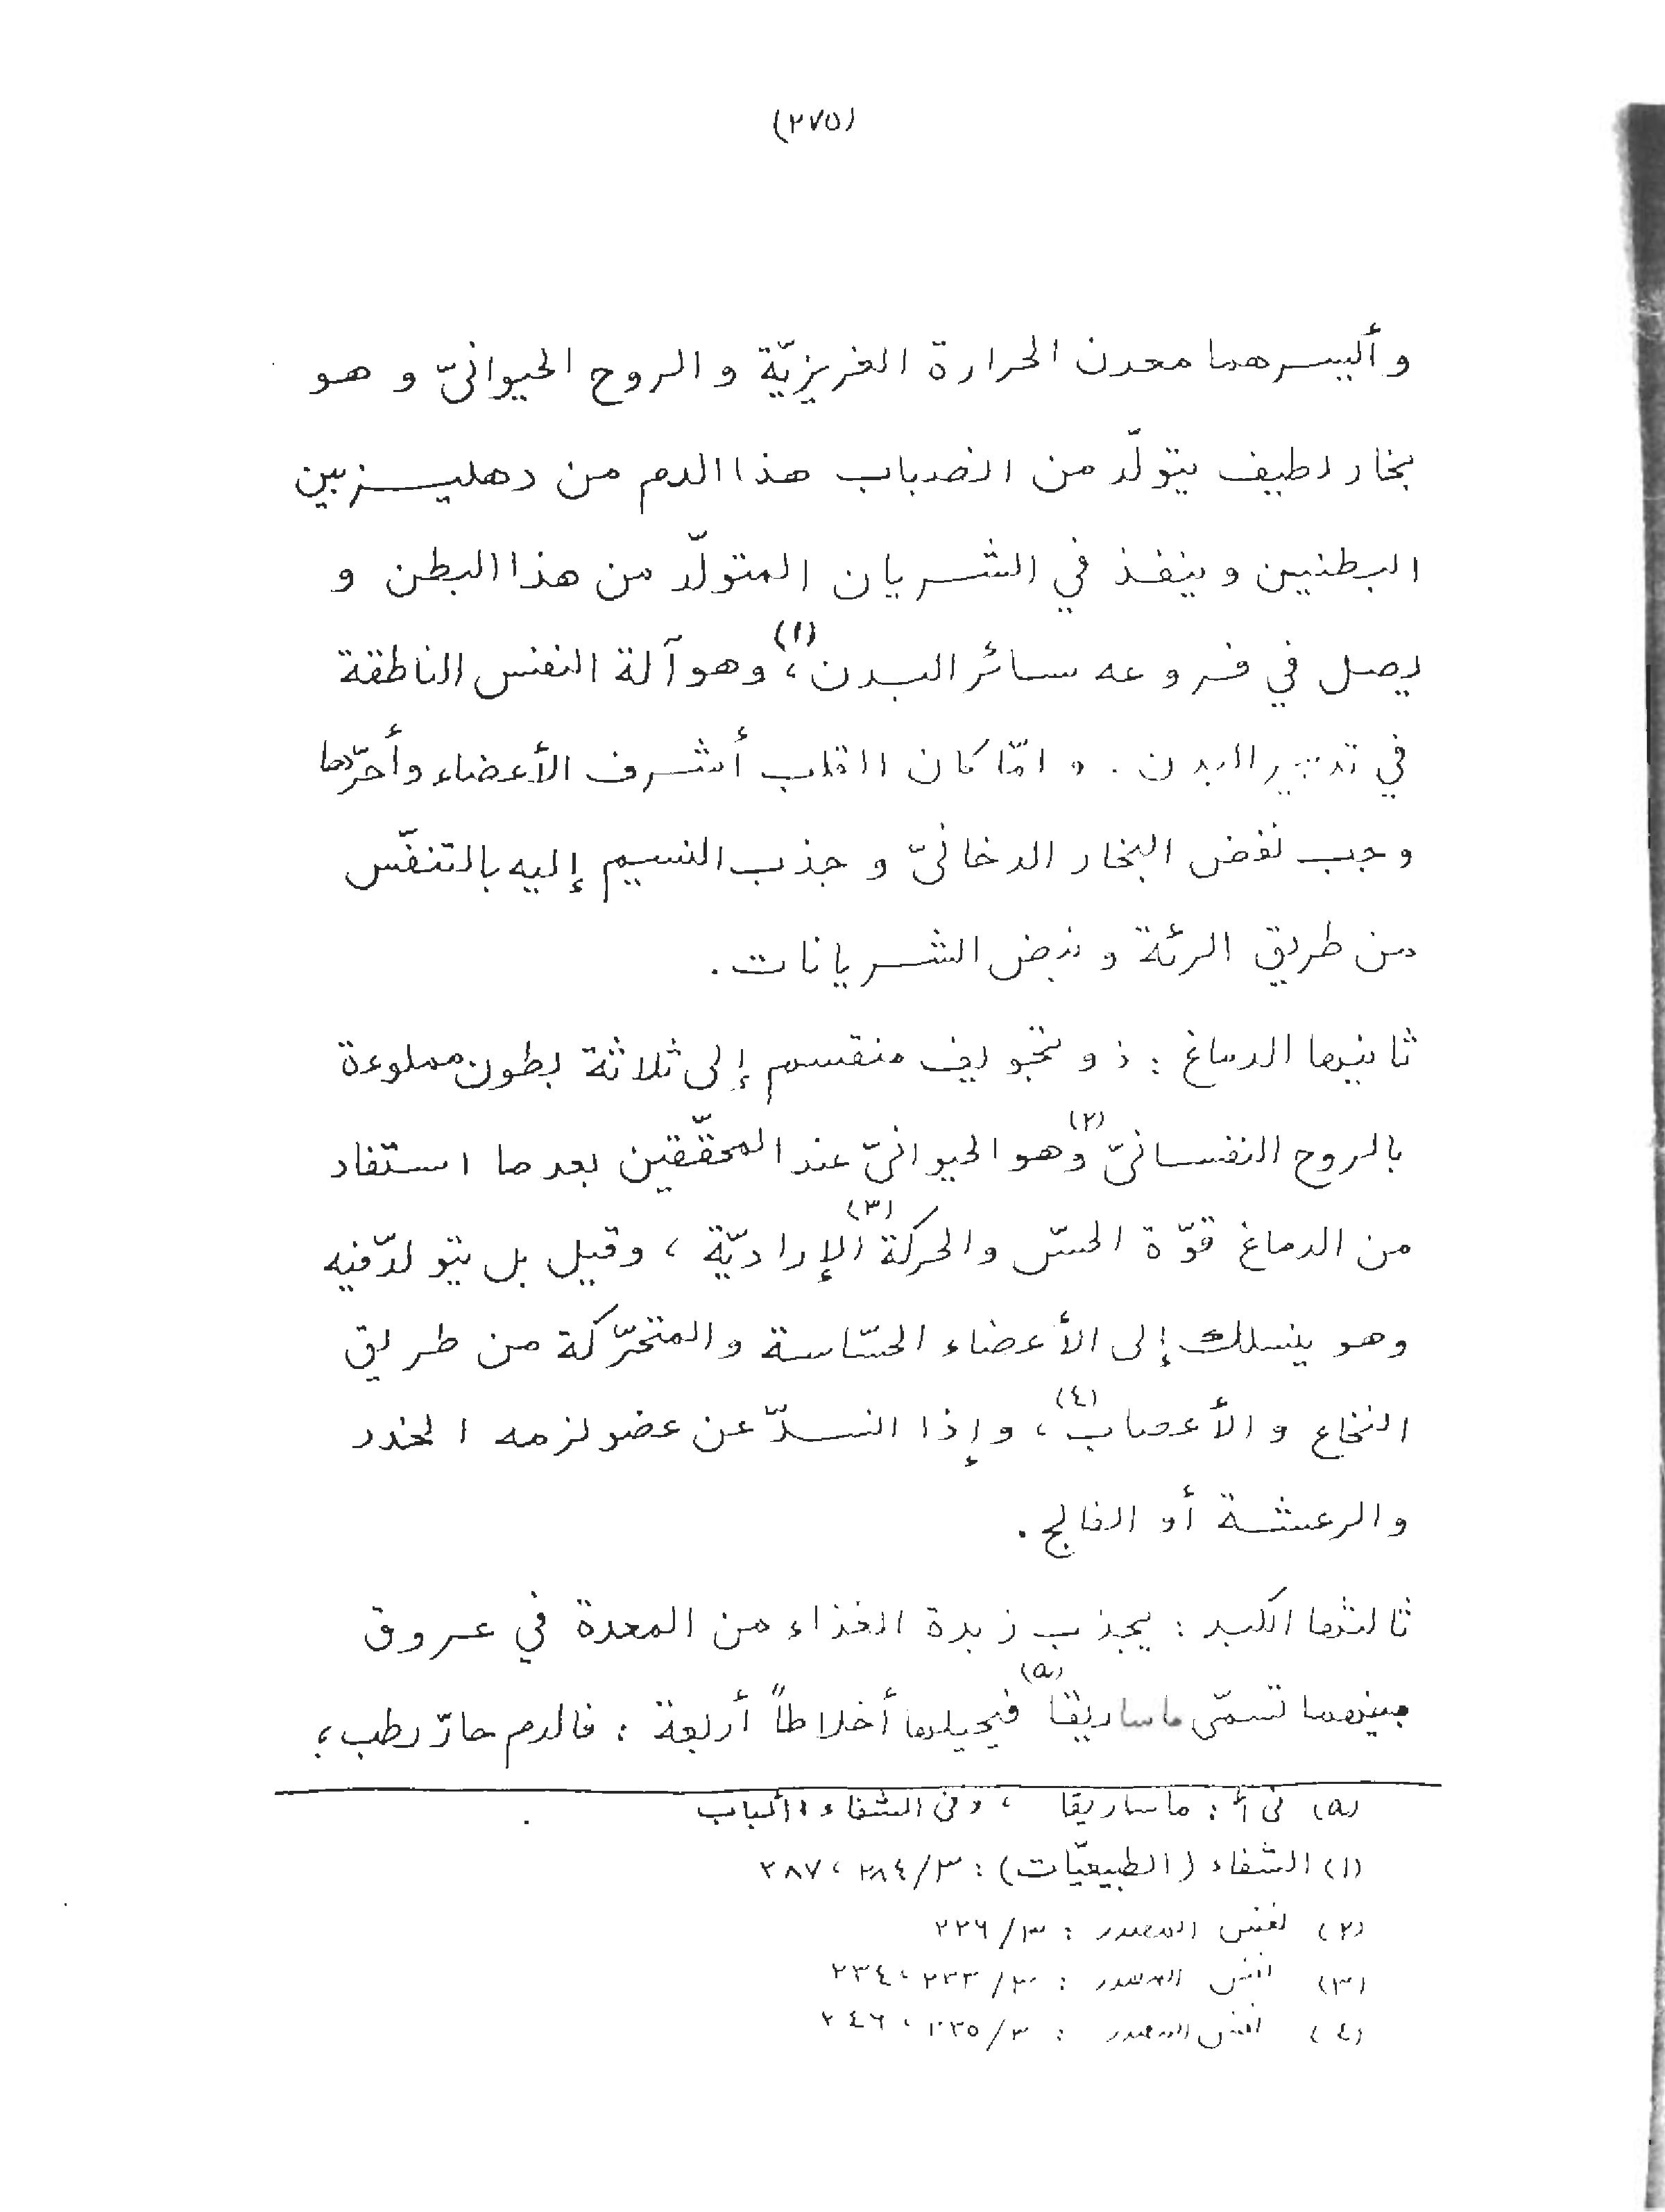 (٢٧٥)
وأليسرهما معدن الحرارة الغريزيّة والروح الحيوانيّ وهو
بخار لطيف يتولّد من انصباب هذا الدم من دهليز بين
البطنين وينفذ في الشريان المتولّد من هذا البطن و
يصل في فروعه سائر البدن(١)، وهو آلة النفس الناطقة
في تدبير البدن. ولمّا كان القلب أشرف الأعضاء وأحرّها
وجب نفض البخار الدخانيّ وجذب النسيم إليه بالتنفّس
من طريق الرئة ونبض الشريانات.
ثانيها الدماغ: ذو تجويف منقسم إلى ثلاثة بطون مملوءة
بالروح النفسانيّ(٢) وهو الحيوانيّ عند المحقّقين بعد ما استفاد
من الدماغ قوّة الحسّ والحركة(٣) الإراديّة، وقيل بل يتولّد فيه
وهو ينسلك إلى الأعضاء الحسّاسة والمتحرّكة من طريق
النخاع والأعصاب(٤)، وإذا انسدّ عن عضو لزمه الخدر
والرعشة أو الفالج.
ثالثها الكبد: يجذب زبدة الغذاء من المعدة في عروق
بينهما تسمّى ماساريقا(۵) فيحيلها أخلاطاً أربعة: فالدم حارّ رطب،
(۵) في أ: ماساريقا، وفي الشفاء: ألباب
(١) الشفاء (الطبيعيّات): ٣/٢٨٤، ٢٨٧
(٢) نفس المصدر: ٣/٢٢٦
(٣) نفس المصدر: ٣/٢٣٣، ٢٣٤
(٤) نفس المصدر: ٣/٢٣٥، ٢٤٦